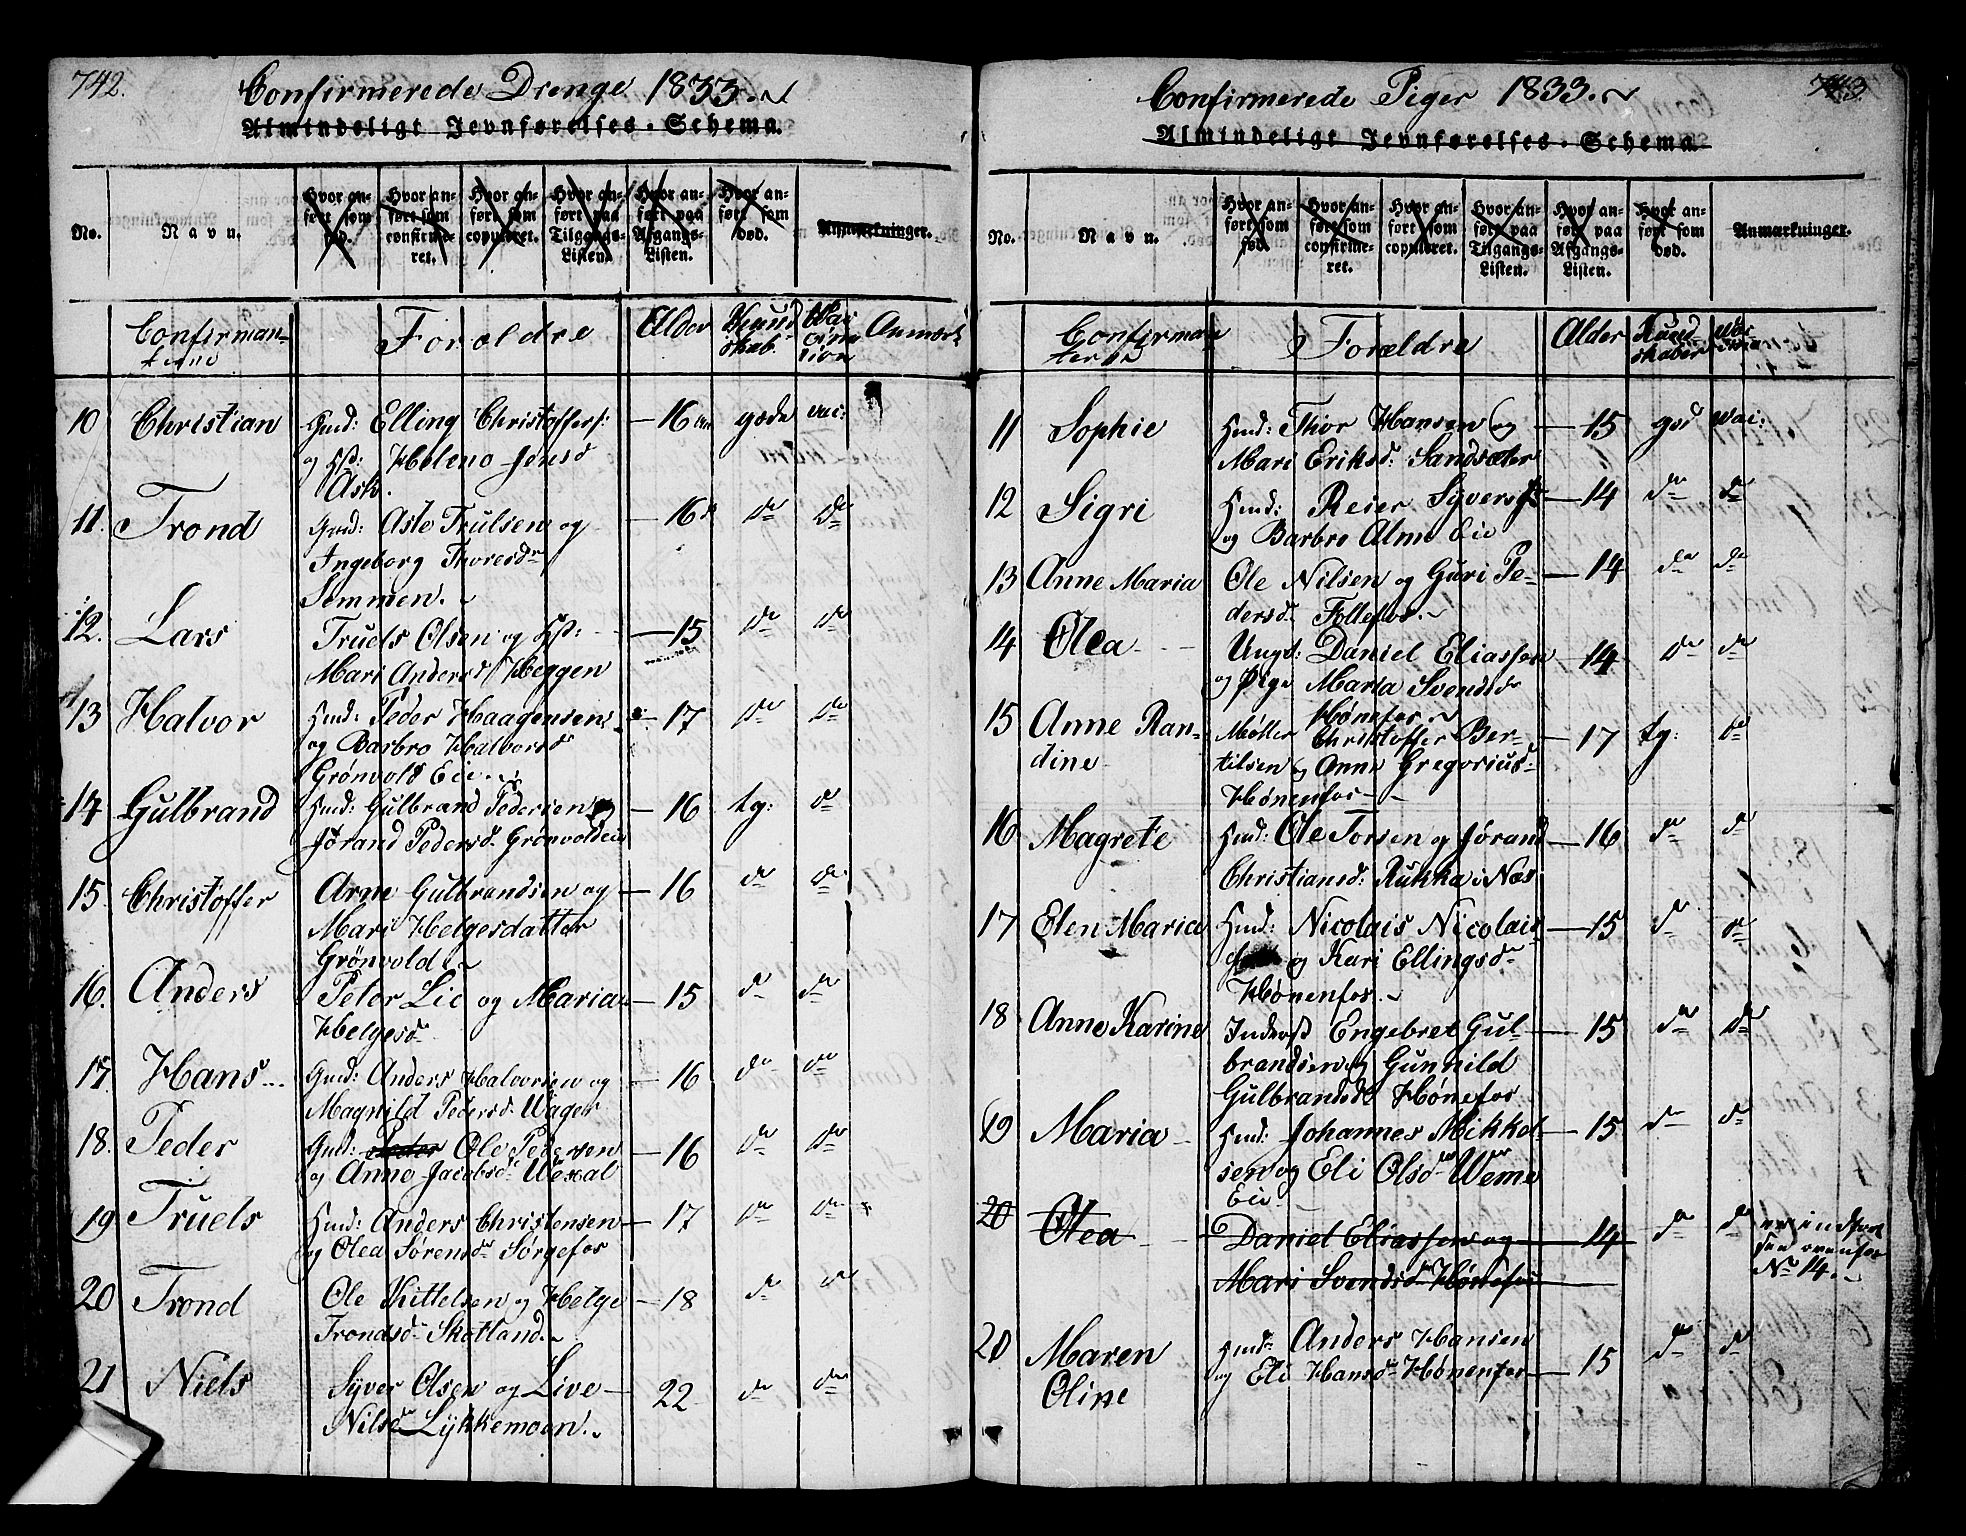 742.
Confirmerede Drenge 1833.
Almindeligt Jevnførelses-Schema.
No.
Navn.
Hvor anført som fød.
Hvor anført som confirmeret.
Hvor anført som copuleret.
Hvor anført paa Tilgangs-Listen.
Hvor anført paa Afgangs-Listen.
Hvor anført som død.
Anmærkninger.
Confirmanterne
Forældre
Alder
Kundskab.
Vaccination
Anmærk
10 Christian Hmd: Elling Christoffers: — 16 gode vac:
og Hst: Helene Jensd
Ask.
11. Trond Gmd: Aste Trulsen og — 16 do do
Ingeborg Thoresdr
Semmen.
12. Lars Truels Olsen og Hst: — 15 do do
Mari Andersd Heggen
13 Halvor Hmd: Peder Haagensen — 17 do do
og Barbro Halvorsd
Grønvold Eie.
14 Gulbrand Hmd: Gulbrand Pedersen — 16 tg: do
Jørand Pedersd. Grønvoldeie
15. Christoffer Arne Gulbrandsen og — 16 do do
Mari Helgesdatter
Grønvold
16. Anders Peter Lie og Maria — 15 do do
Helgesd
17. Hans Gmd: Anders Halvorsen og — 16 do do
Magnild Pedersd. Wager
18. Peder Gmd: Peder Ole Pedersen — 16 do do
og Anne Jacobsd. Wexal
19 Truels Hmd: Anders Christensen — 17 do do
og Olea Sørensdr Sørgefos
20 Trond Ole Kittelsen og Helge — 18 do do
Trondsd Skotland
21 Niels Syver Olsen og Live — 22 do do
Nilsd Lykkemoen.
743.
Confirmerede Piger 1833.
Almindeligt Jevnførelses-Schema.
No.
Navn.
Hvor anført som fød.
Hvor anført som confirmeret.
Hvor anført som copuleret.
Hvor anført paa Tilgangs-Listen.
Hvor anført paa Afgangs-Listen.
Hvor anført som død.
Anmærkninger.
Confirman
terne
Forældre
Alder
Kundskaber
11 Sophie Hmd: Thor Hansen og — 15 god vac:
Mari Eriksd: Sandsæter
12 Sigri Hmd: Reier Syvers — 14 do do
og Barbro Alme Eie
13 Anne Maria Ole Nilsen og Guri Pe- — 14 do do
dersd. Follefos.
14 Olea Ungd: Daniel Eliassen — 14 do do
og Pige Maria Svendsdr
Hønefos.
15 Anne Ran- Møller Christoffer Ber- — 17 tg: do
dine tilsen og Anne Gregorius
Hønenfos
16 Magrete Hmd: Ole Torsen og Jørand — 16 do do
Christiansd: Rukka i Næs
17 Elen Maria Hmd: Nicolais Nicolais- — 15 do do
og Kari Ellingsd
Hønenfos.
18 Anne Karine Inderst Engebret Gul- — 15 do do
brandsen og Gunnild
Gulbrandsd Hønefos
19 Maria Hmd: Johannes Mikkel- — 15 do do
sen og Eli Olsd Weme
Eie
20 Olea Daniel Eliassen og — 14 do do er indført
Mari Svendsd Hønefos ovenfor
No 14.
20 Maren Hmd: Anders Hansen
Oline og Eli Hansd Hønenfos — 15 do do